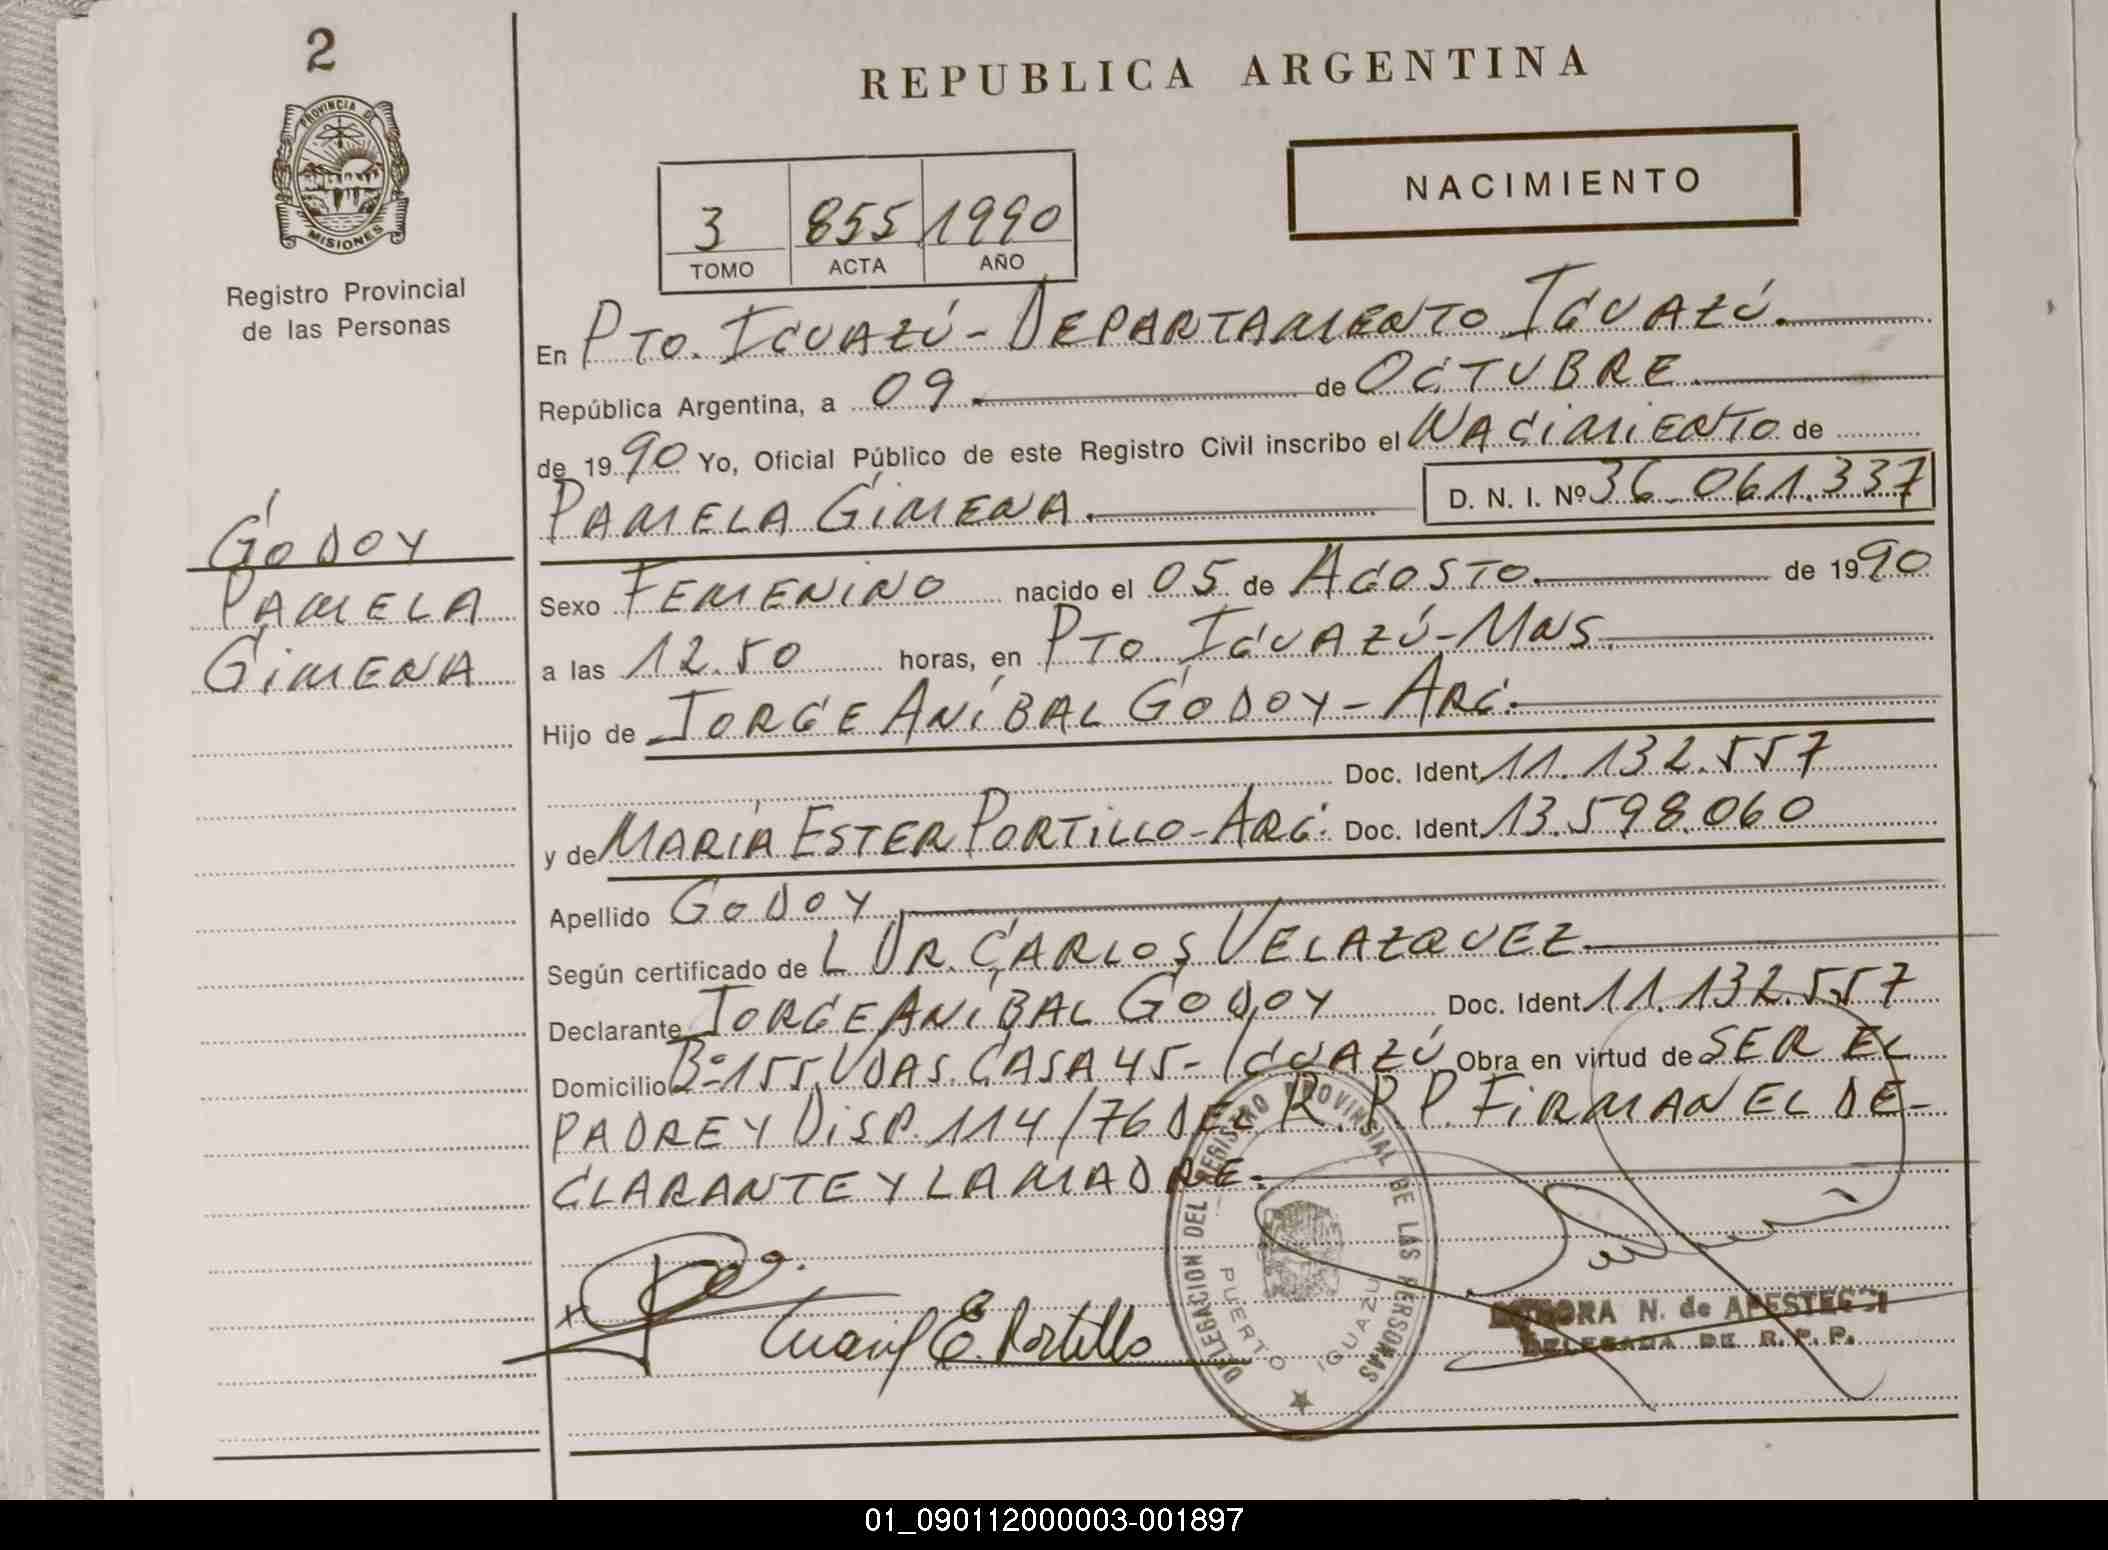 2
PROVINCIA DE
MISIONES
Registro Provincial
de las Personas
REPUBLICA ARGENTINA
NACIMIENTO
3 855 1990
TOMO ACTA AÑO
En PTO. IGUAZÚ - DEPARTAMENTO IGUAZÚ.
República Argentina, a 09 de OCTUBRE
de 1990 Yo, Oficial Público de este Registro Civil inscribo el NACIMIENTO de
PAMELA GIMENA. D. N. I. Nº 36.061.337
GODOY
PAMELA
GIMENA
Sexo FEMENINO nacido el 05 de AGOSTO de 1990
a las 12.50 horas, en PTO. IGUAZÚ - MNS.
Hijo de JORGE ANÍBAL GODOY - ARG.
Doc. Ident. 11.132.557
y de MARÍA ESTER PORTILLO - ARG. Doc. Ident. 13.598.060
Apellido GODOY
Según certificado de L DR. CARLOS VELAZQUEZ
Declarante JORGE ANÍBAL GODOY Doc. Ident. 11.132.557
Domicilio Bº 155 VDAS. CASA 45 - IGUAZÚ Obra en virtud de SER EL
PADRE Y DISP. 114/76 DEL R. P. P. FIRMAN EL DE-
CLARANTE Y LA MADRE.
DELEGACION DEL REGISTRO PROVINCIAL DE LAS PERSONAS
PUERTO IGUAZU
María E. Portillo
N. de
DELEGADA DE R. P. P.
01_090112000003-001897